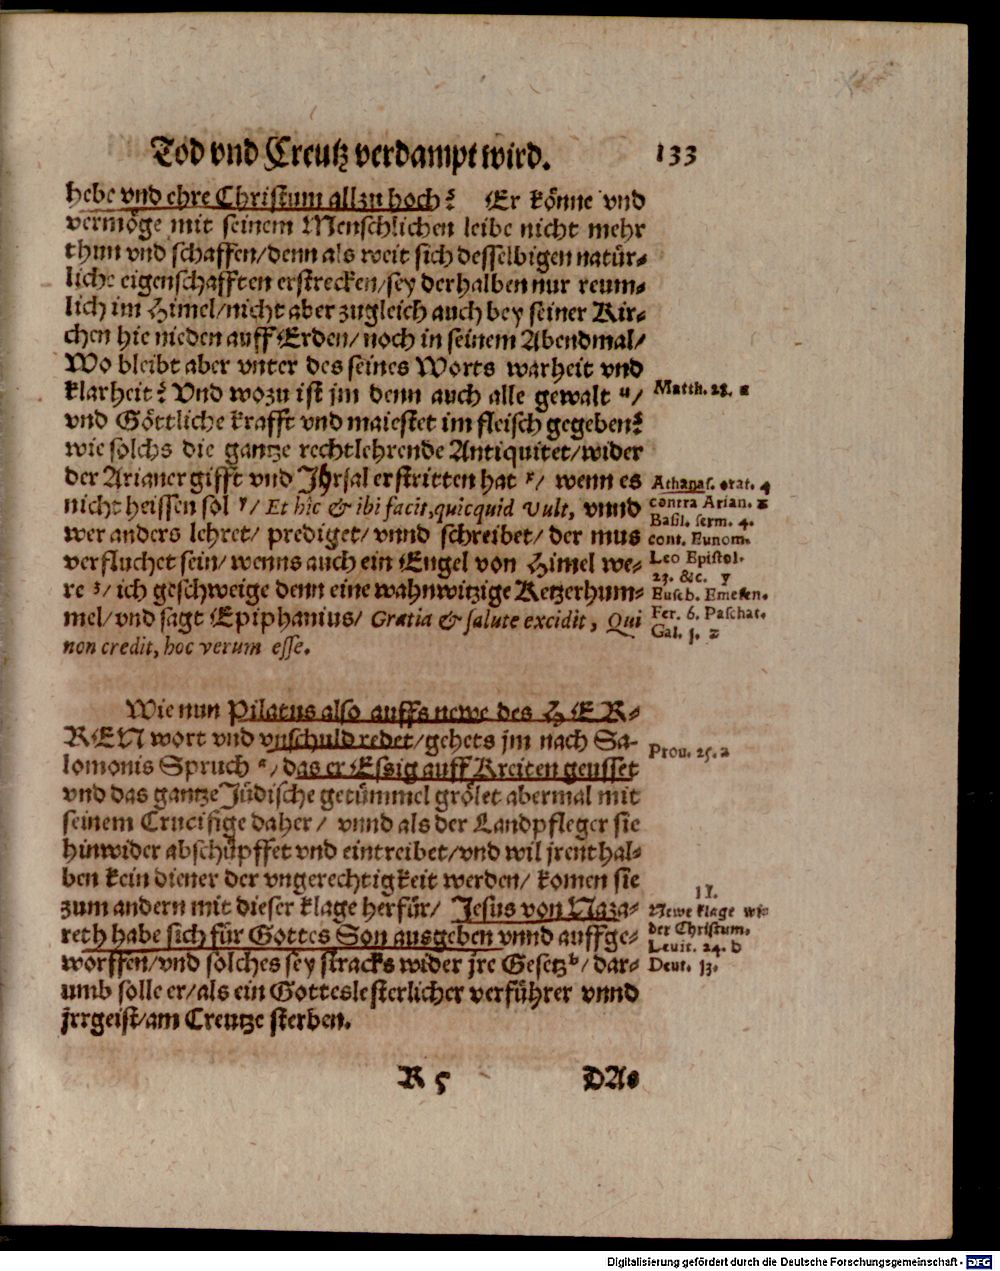 Tod vnd Creutz verdampt wird. 133
hebe vnd ehre Christum allzu hoch? Er könne vnd
vermöge mit seinem Menschlichen leibe nicht mehr
thun vnd schaffen/denn als weit sich desselbigen natür-
liche eigenschafften erstrecken/sey derhalben nur reum-
lich im Himel/nicht aber zugleich auch bey seiner Kir-
chen hie nieden auff Erden/noch in seinem Abendmal/
Wo bleibt aber vnter des seines Worts warheit vnd
klarheit? Vnd wozu ist jm denn auch alle gewalt u/
Matth. 28. u
vnd Göttliche krafft vnd maiestet im fleisch gegeben?
wie solchs die gantze rechtlehrende Antiquitet/wider
der Arianer gifft vnd Jhrsal erstritten hat x/ wenn es
Athanas. orat. 4
nicht heissen sol y/ Et hic & ibi facit, quicquid Vult, vnnd
contra Arian. x
Basil. serm. 4.
wer anders lehret/ prediget/ vnnd schreibet/ der mus
cont. Eunom.
verfluchet sein/ wenns auch ein Engel von Himel we-
Leo Epistol.
23. &c. y
re z/ ich geschweige denn eine wahnwitzige Ketzerhum-
Euseb. Emesen.
mel/vnd sagt Epiphanius/ Gratia & salute excidit, Qui
Fer. 6. Paschat.
Gal. 1. z
non credit, hoc verum esse.
Wie nun Pilatus also auffs newe des HER-
REN wort vnd vnschuld redet/gehets jm nach Sa-
Prou. 25. a
lomonis Spruch a/das er Essig auff Kreiten geusset
vnd das gantze Jüdische getümmel grölet abermal mit
seinem Crucifige daher/ vnnd als der Landpfleger sie
hinwider abschüpffet vnd eintreibet/vnd wil jrenthal-
ben kein diener der vngerechtigkeit werden/ komen sie
II.
zum andern mit dieser klage herfür/ Jesus von Naza-
Newe klage wi-
reth habe sich für Gottes Son ausgeben vnnd auffge-
der Christum.
Leuit. 24. b
worffen/vnd solches sey stracks wider jre Gesetz b/ dar-
Deut. 13.
umb solle er/als ein Gotteslesterlicher verführer vnnd
jrrgeist/am Creutze sterben.
R 5 DA-
Digitalisierung gefördert durch die Deutsche Forschungsgemeinschaft - DFG